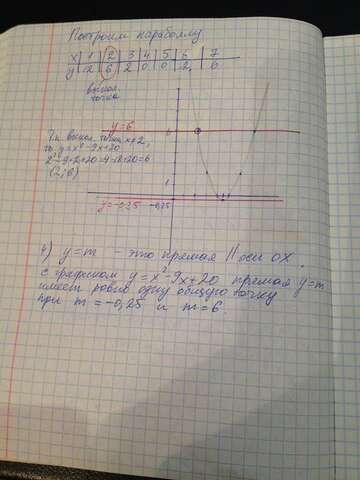 Построим параболу
x 1 2 3 4 5 6 7
y 12 6 2 0 0 2 6
выкол.
точка
y=6
Т.к. выкол. точка x≠2,
то y=x²-9x+20
2²-9·2+20=4-18+20=6
(2;6)
1
y=-0,25 -0,25
4) y=m - это прямая || оси OX.
с графиком y=x²-9x+20 прямая y=m
имеет ровно одну общую точку
при m=-0,25 и m=6.